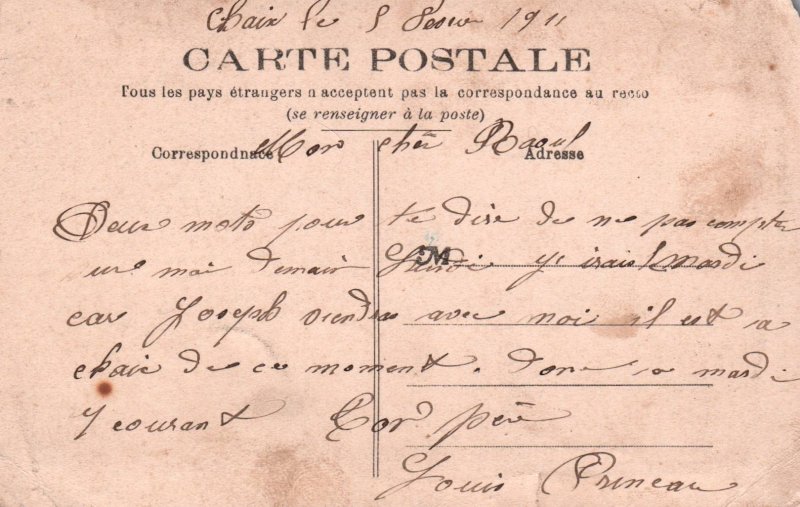 Chaix le 5 1911
CARTE POSTALE
Tous les pays étrangers n acceptent pas la correspondance au recto
(se renseigner à la poste)
Correspondnace
Mon cher Raoul
Adresse
Deux mots pour te dire de ne pas compter
M
sur moi demain Lundi j irais le mardi
car Joseph viendras avec moi il est a
chaix de ce moment. donc a mardi
7 courant Ton père
Louis Princeau